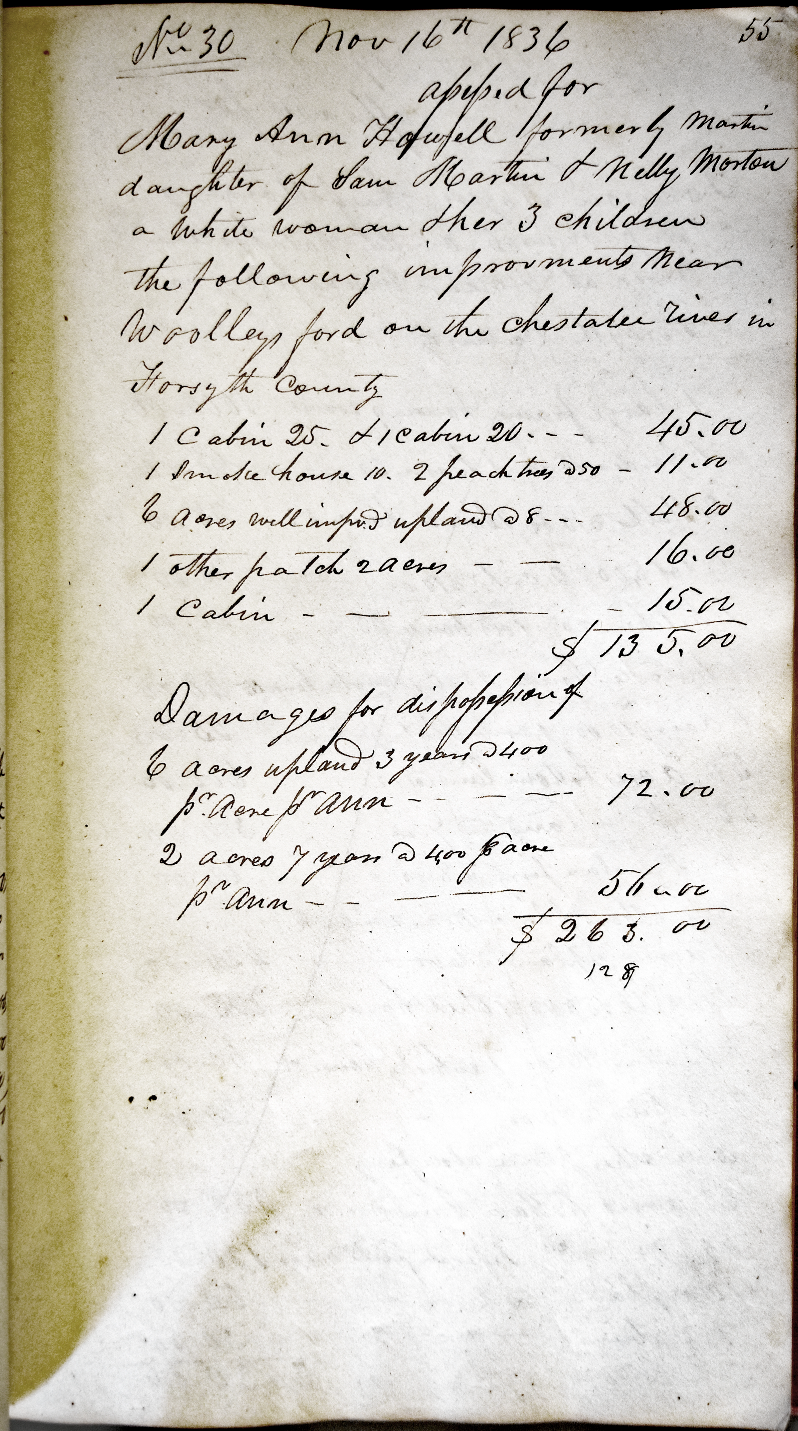 No 30 Nov 16th 1836 55
assessed for
Mary Ann Howell formerly Martin
daughter of Sam Martin & Nelly Morton
a white woman & her 3 children
the following improvments near
Woolleys ford on the chestatee river in
Forsyth County
1 Cabin 25. & 1 cabin 20. - - 45.00
1 Smoke house 10. 2 peach trees @ 50 - 11.00
6 acres well impvd upland @ 8 - - - 48.00
1 other patch 2 acres - - 16.00
1 Cabin - - - - 15.00
$ 135.00
Damages for dispossession of
6 acres upland 3 years @ 400
pr Acre pr Ann - - - - - 72.00
2 acres 7 years @ 4,00 pr acre
pr Ann - - - - 56.00
$ 263.00
128